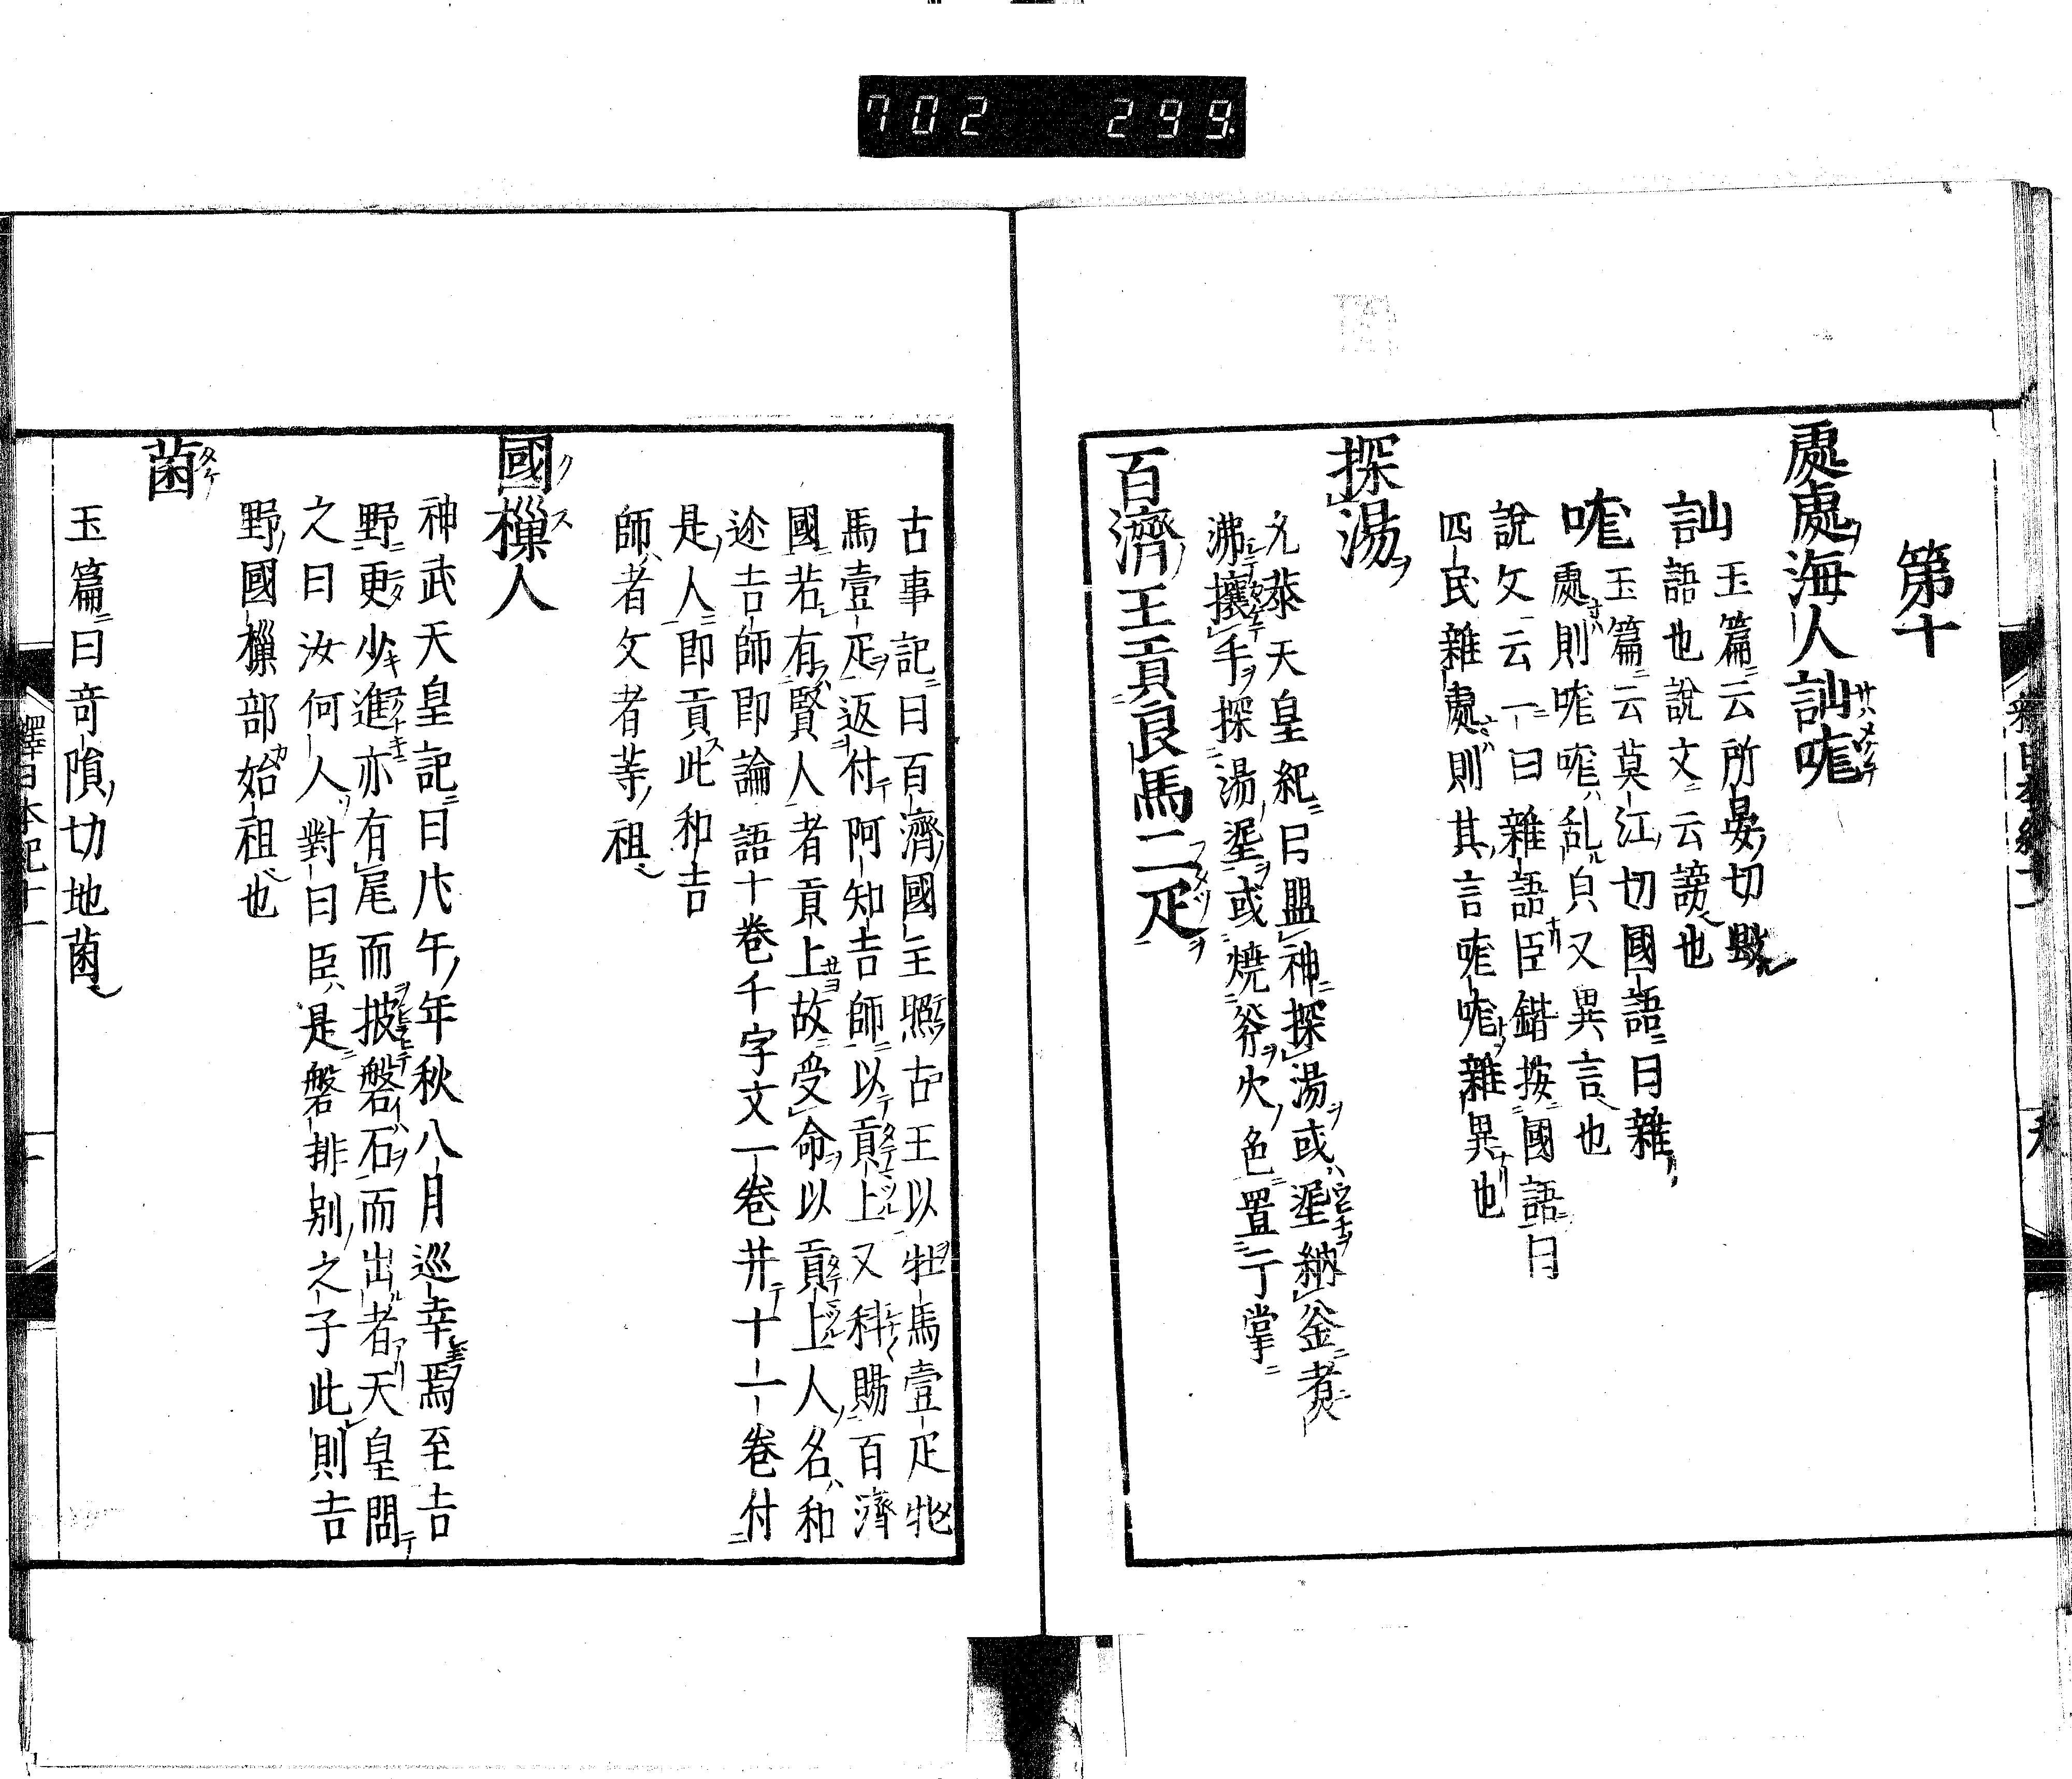 702 299
第十
處處海人訕哤
玉篇云所晏切毀
訕語也說文云謗也
哤玉篇云莫江切國語曰雜
處則哤哤乱皃又異言也
說文云一曰雜語臣鍇按國語曰
四民雜處則其言哤哤雜異也
探湯
允恭天皇紀曰盟神探湯或埿納釜煮
沸攘手探湯埿或燒斧火色置于掌
百濟王貢良馬二疋
古事記曰百濟國主照古王以牡馬壹疋牝
馬壹疋返付阿知吉師以貢上又科賜百濟
國若有賢人者貢上故受命以貢上人名和
迩吉師即論語十卷千字文一卷并十一卷付
是人即貢此和吉
師者文者等祖
國樔人
神武天皇記曰戊午年秋八月巡幸焉至吉
野更少進亦有尾而披磐石而出者天皇問
之曰汝何人對曰臣是磐排別之子此則吉
野國樔部始祖也
菌
玉篇曰奇隕切地菌
釋日本紀十一